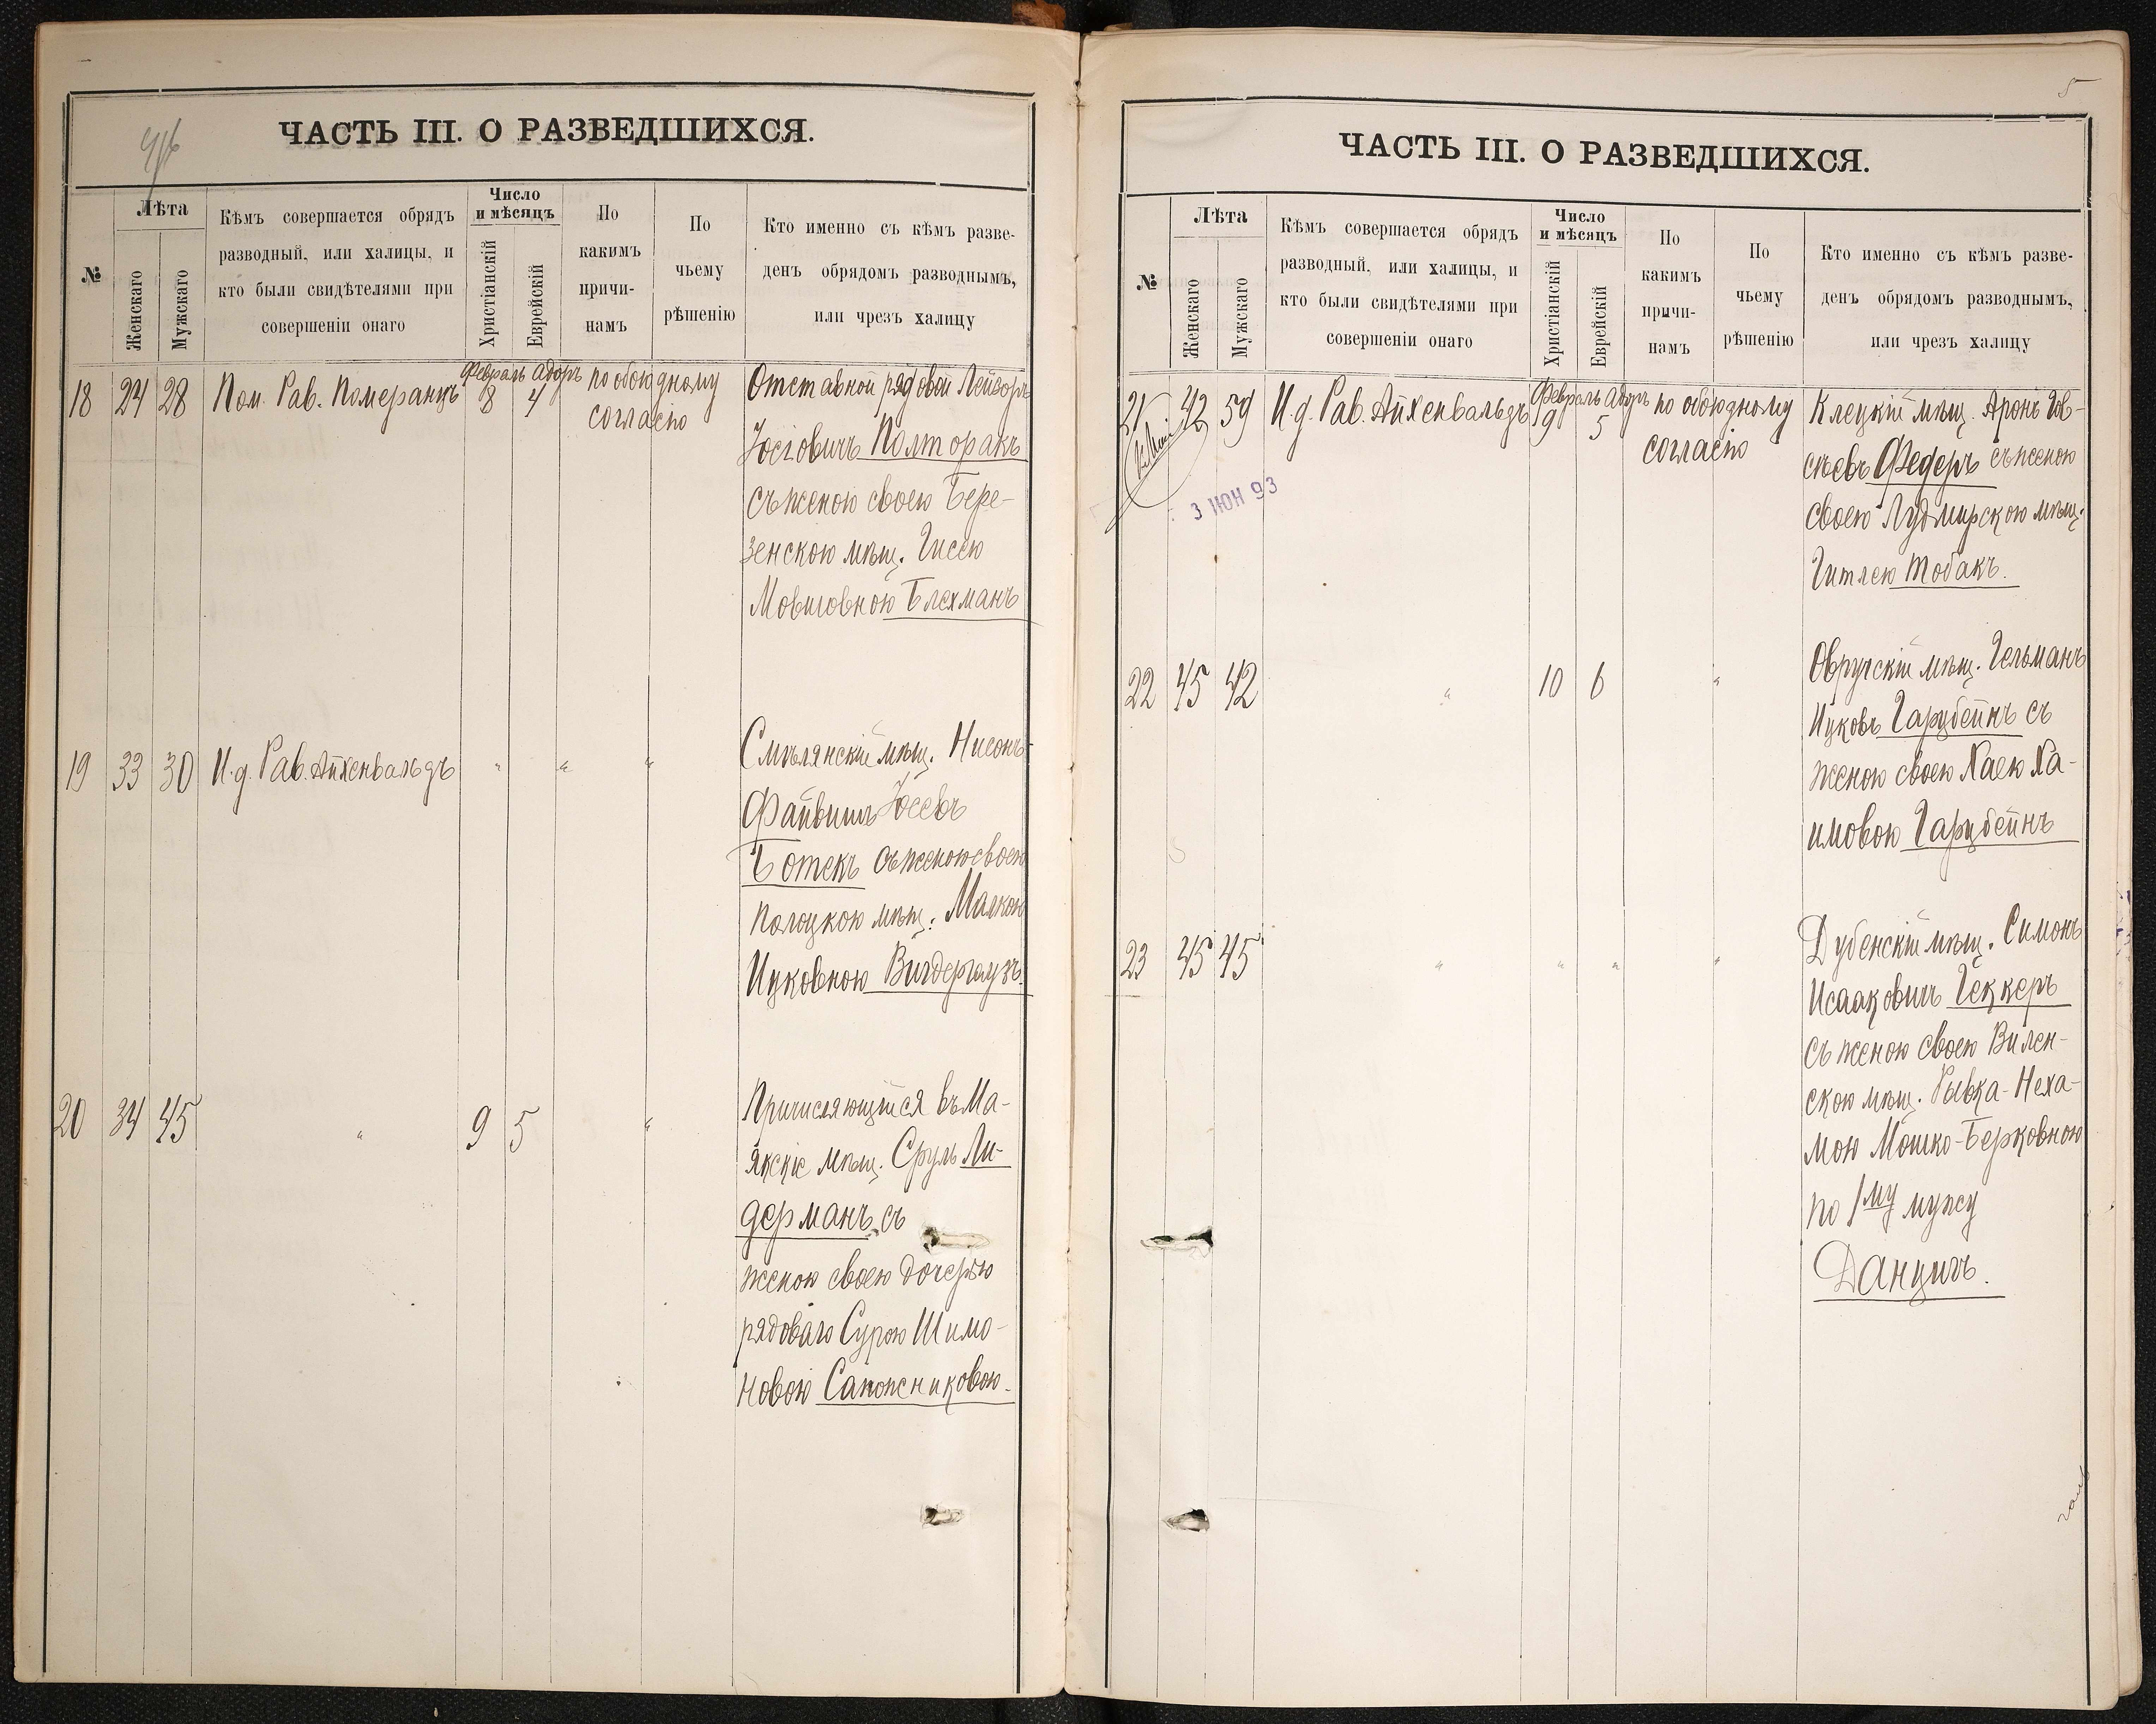 ЧАСТЬ III. О РАЗВЕДШИХСЯ.
№
Лѣта
Женскаго
Мужскаго
Кѣмъ совершается обрядъ
разводный, или халицы, и
кто были свидѣтелями при
совершеніи онаго
Число
и мѣсяцъ
Христіанскій
Еврейскій
По
какимъ
причи-
намъ
По
чьему
рѣшенію
Кто именно съ кѣмъ разве-
денъ обрядомъ разводнымъ,
или чрезъ халицу
18 24 28 Пом. Рав. Померанцъ Февраль 8 Адоръ 4 по обоюдному
согласію
Отставной рядовой Лейзоръ
Іосіовичъ Полторакъ
съ женою своею Бере-
зенскою мѣщ. Гиссею
Мовшовною Блехманъ
19 33 30 И.д. Рав. Айхенвальдъ " " "
Смѣлянскій мѣщ. Нисонъ-
Файвишъ Іосевъ
Ботекъ съ женою своею
Полоцкою мѣщ. Малкою
Ицковною Вигдергаузъ.
20 34 45 " 9 5 "
Причисляющійся въ Ма-
якскіе мѣщ. Сруль Ли-
дерманъ съ
женою своею дочерью
рядоваго Сурою Шимо-
новою Сапожниковою.
5
ЧАСТЬ III. О РАЗВЕДШИХСЯ.
№
Лѣта
Женскаго
Мужскаго
Кѣмъ совершается обрядъ
разводный, или халицы, и
кто были свидѣтелями при
совершеніи онаго
Число
и мѣсяцъ
Христіанскій
Еврейскій
По
какимъ
причи-
намъ
По
чьему
рѣшенію
Кто именно съ кѣмъ разве-
денъ обрядомъ разводнымъ,
или чрезъ халицу
21 42 59 И.д. Рав. Айхенвальдъ Февраль 9 Адоръ 5 по обоюдному
согласію
3 ИЮН 93
Клецкій мѣщ. Аронъ Іов-
сѣевъ Федеръ съ женою
своею Лудмирскою мѣщ.
Гитлею Тобакъ.
22 45 42 " 10 6 "
Овручскій мѣщ. Гельманъ
Ицковъ Гарцбейнъ съ
женою своею Хаею Ха-
имовою Гарцбейнъ
23 45 45 " " " "
Дубенскій мѣщ. Симонъ
Исааковичъ Геккеръ
съ женою своею Вилен-
скою мѣщ. Рывка-Неха-
мою Мошко-Берковною
по 1му мужу
Данцигъ.